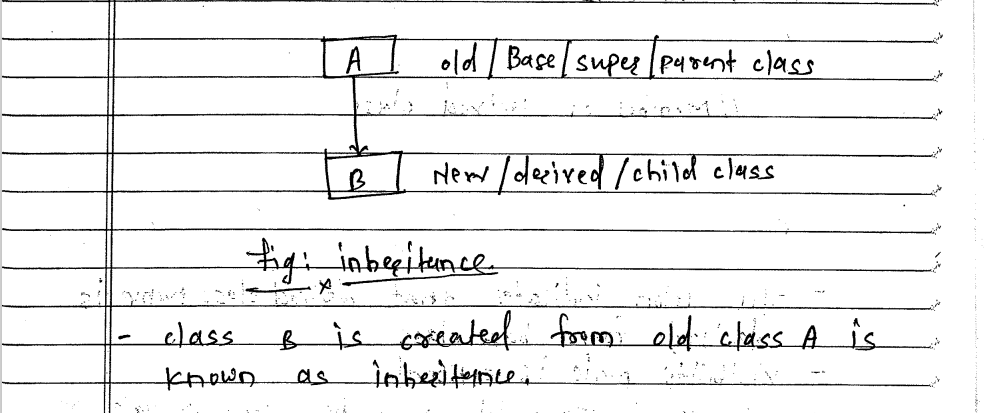 A old / Base / super / parent class
B New / derived / child class
fig: inheritance.
- class B is created from old class A is
known as inheritance.